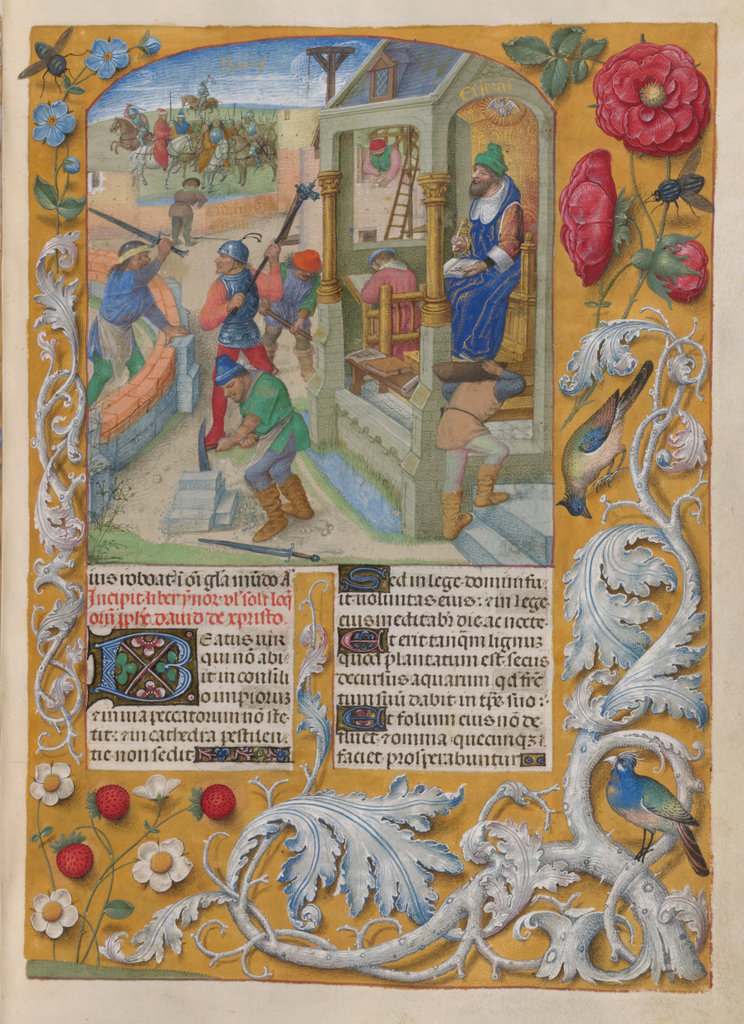 Esdras
ius roboat i oī gl'a mūdo A
Incipit liber ȳnor. vl' solil'oq̄
orū ꝓph'e. dauid de xpristo.
Beatus uir
qui nō abi
it in consili
o impiorum
⁊ in uia peccatorum nō ste
tit: ⁊ in cathedra pestilen
tie non sedit
Sed in lege domini fu
it uoluntas eius: ⁊ in lege
eius meditabit̄ die ac nocte
Et erit tanq̄m lignum
quod plantatum est secus
decursus aquarum qd̄ fruc
tum suū dabit in tp̄e suo:
Et folium eius nō de
fluet: ⁊ omnia quecunq̧
faciet prosperabuntur